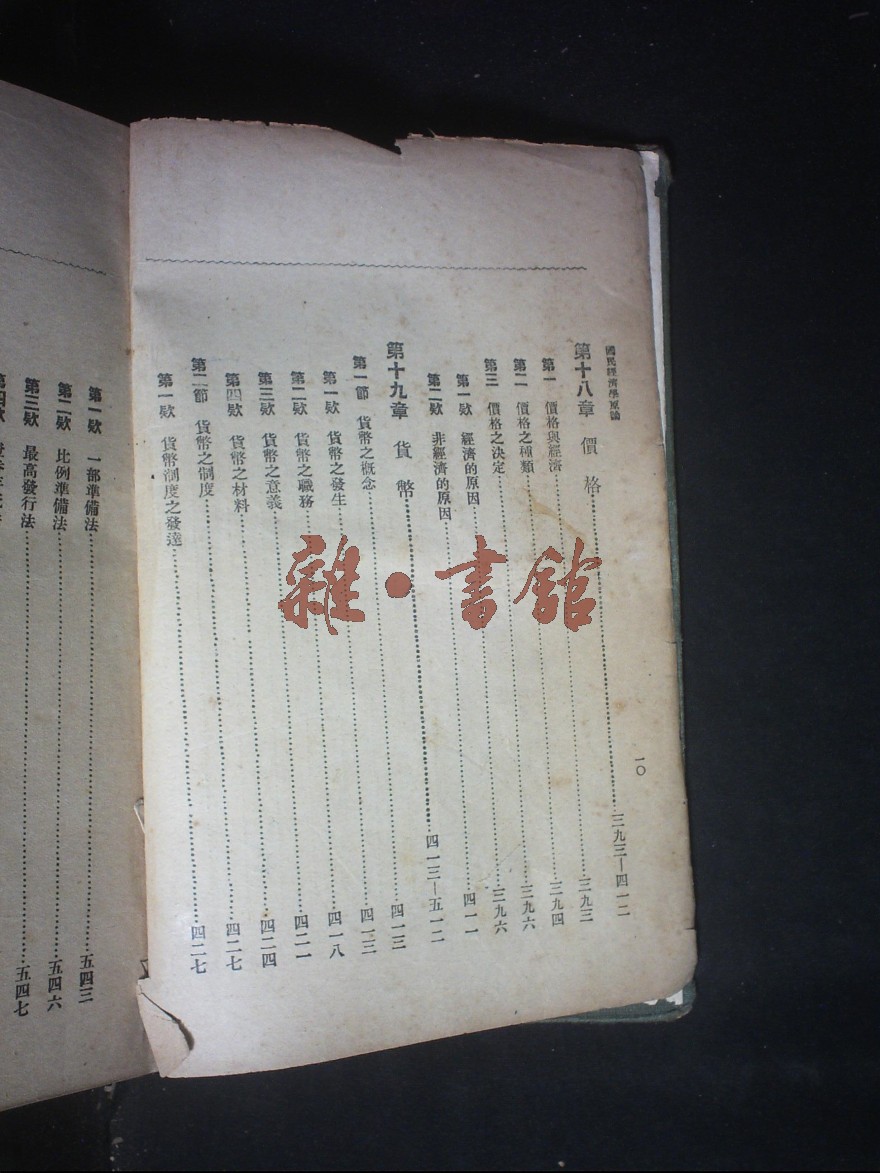 國民經濟學原論 一〇
第十八章 價格……三九三—四一二
第一 價格與經濟……三九三
第二 價格之種類……三九四
第三 價格之決定……三九六
第一欵 經濟的原因……三九六
第二欵 非經濟的原因……四一一
第十九章 貨幣……四一三—五一二
第一節 貨幣之概念……四一三
第一欵 貨幣之發生……四一三
第二欵 貨幣之職務……四一八
第三欵 貨幣之意義……四二一
第四欵 貨幣之材料……四二四
第二節 貨幣之制度……四二七
第一欵 貨幣制度之發達……四二七
第一欵 一部準備法……五四三
第二欵 比例準備法……五四六
第三欵 最高發行法……五四七
第四欵
雜·書館